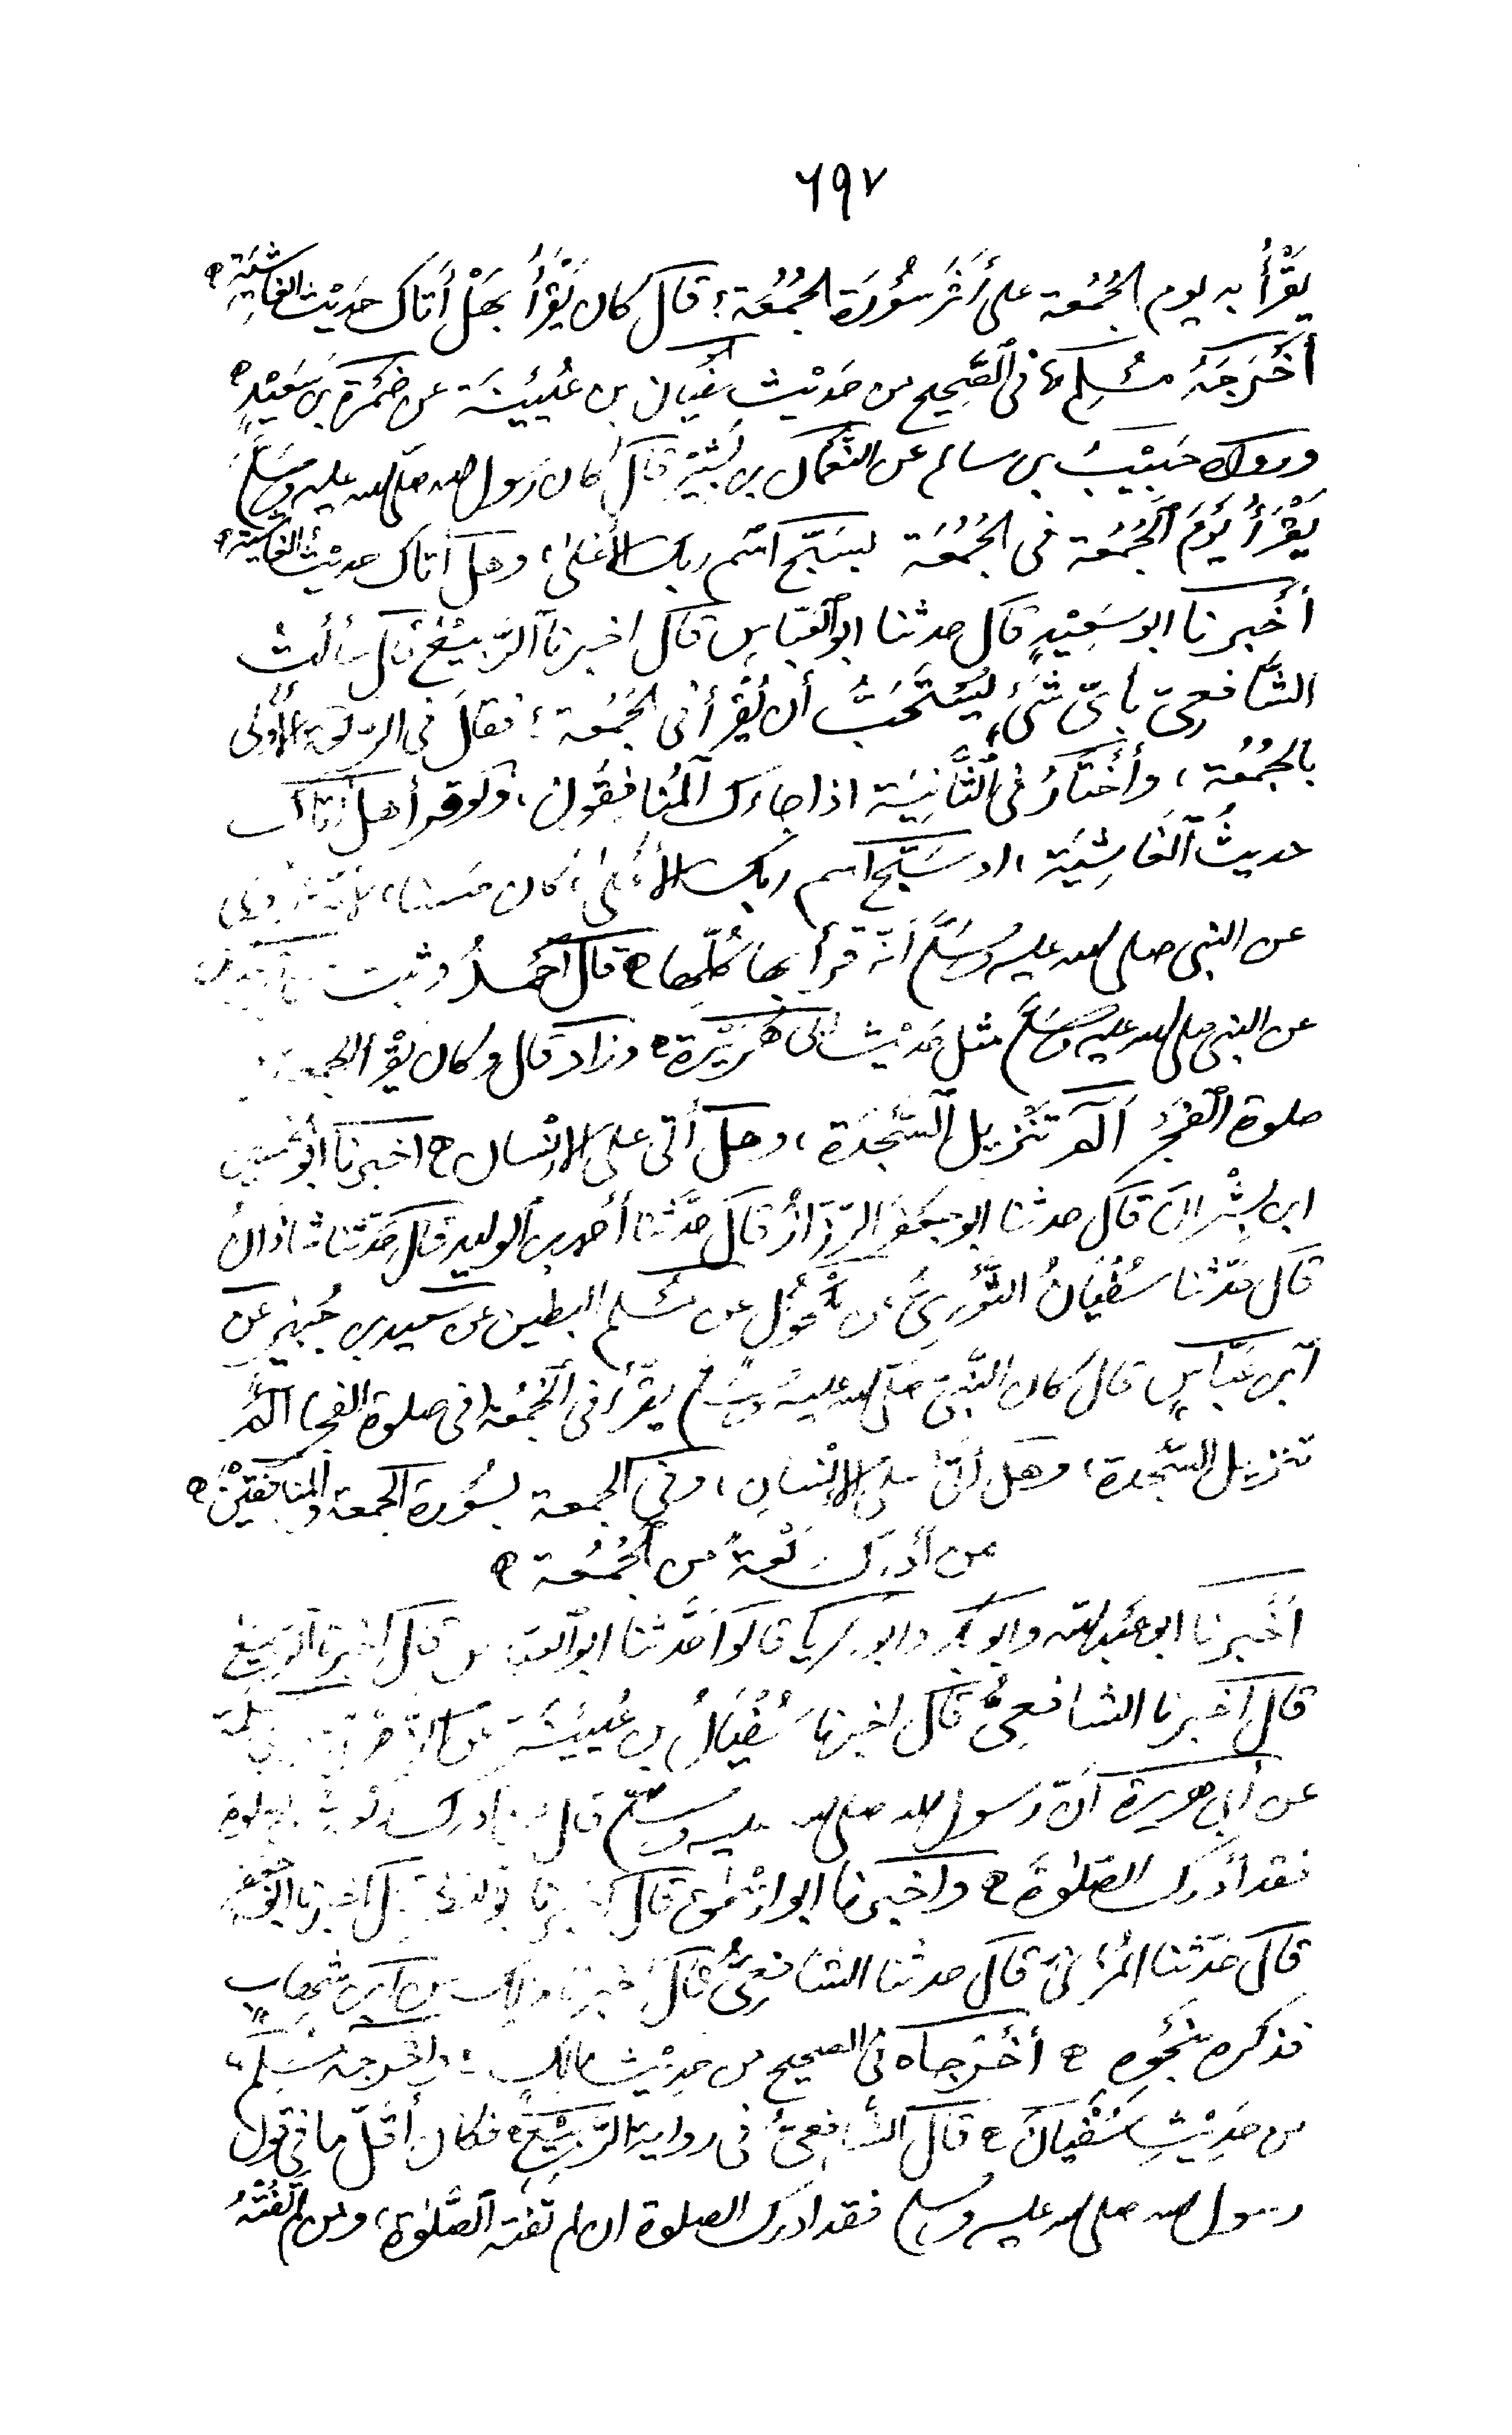 ٦٩٧
يَقْرَأُ به يوم الجُمُعة على أَثَرِ سُوْرَة الجُمُعَة؟ قال كان يَقْرَأُ بِهَلْ أَتَاك حَدِيْث الغاشِيَة
أَخْرَجَهُ مُسْلِم فى الصَّحِيح من حَدِيْث سُفْيَان بن عُيَيْنَة عن ضَمْرَة بن سَعِيْدٍ
وروى حَبِيْبُ بن سالم عن النُّعْمَان بن بَشِيْرٍ قال كان رَسُول الله صلى الله عليه وسَلَّمَ
يَقْرَأُ يَوْمَ الْجُمُعة فى الجُمُعَة بسَبِّح اسْم ربك الأَعْلَى، وهل أتاك حديث الغاشية
أَخْبرنا ابو سَعِيْدٍ قال حدثنا ابو العَبّاسِ قال اخبرنا الرَّبِيْعُ قال سألتُ
الشّافعىّ بأىّ شَىْءٍ يُسْتَحَبُّ أن يُقْرأ فى الجُمُعة؟ فقال فى الركعة الأولى
بالجُمُعة، وأَخْتَارُ فى الثَّانِيَة اذا جاءك المُنافِقُون، ولو قرأ هل أتاك
حديثُ الغَاشِيَة، او سَبِّح اسم ربك الأعلى، كان حسنا، لأنّه روى
عن النبى صلى الله عليه وسَلَّم أنّه قرأ بها كُلِّها قال أحمدُ وثبت عن ابن عباس
عن النبى صلى الله عليه وسَلَّم مثل حَدِيْث ابى هُرَيْرَة وزاد قال وكان يَقْرأ الجمعة
صلوة الفجر الٓمٓ تَنْزِيل السَّجْدَة، وهل أتى على الإنْسان اخبرنا أبو الحسين
ابن بِشْرانَ قال حدثنا ابو جعفر الرَّزّازُ قال حَدَّثنا أحمد بن الوليد قال حَدَّثنا شاذانُ
قال حَدَّثنا سُفْيَانُ الثَّوْرِىُّ عن مُخَوَّل عن مُسْلم البطين عن سعيد بن جُبَيْرٍ عن
ابن عَبّاسٍ قال كان النَّبِىّ صَلَّى الله عليه وسَلَّم يَقْرأ فى الجُمُعة فى صلوة الفجر الٓمٓ
تنزيل السَّجْدة، وهل أتى على الإنْسَانِ، وفى الجمعة بسُوْرة الجمعة والمنافقين
من أَدْرَك ركعة من الجُمُعة
أَخْبَرنا ابو عَبْدالله وابو بكر وابو زكريا قالوا حَدَّثنا ابو العباس قال اخبرنا الربيع
قال اخبرنا الشافعىُّ قال اخبرنا سُفْيَانُ بن عُيَيْنَة عن الزهرى عن أبى سلمة
عن أبى هريرة أنّ رسول الله صلى الله عليه وسلّم قال من أدرك ركعة من الصلوة
فقد أدرك الصّلوةَ واخبرنا ابو اسْحٰق قال اخبرنا ابو النضر قال اخبرنا ابو جعفر
قال حَدّثنا المُزَنِىّ قال حدثنا الشافِعِىُّ قال اخبرنا مالك عن ابن شِهَابٍ
فذكره بِنَحْوِهِ أَخْرَجاه فى الصحيح من حَدِيْث مَالِكٍ، واخرجه مُسْلِم
من حَدِيْثِ سُفْيَانَ قال الشّافِعِىُّ فى رواية الرَّبِيْعِ فكان أَقَلّ ما فى قول
رسول الله صلى الله عليه وسلم فقد ادرك الصلوة ان لم تَفُته الصَّلوٰةُ، ومن لم تَفُتْهُ